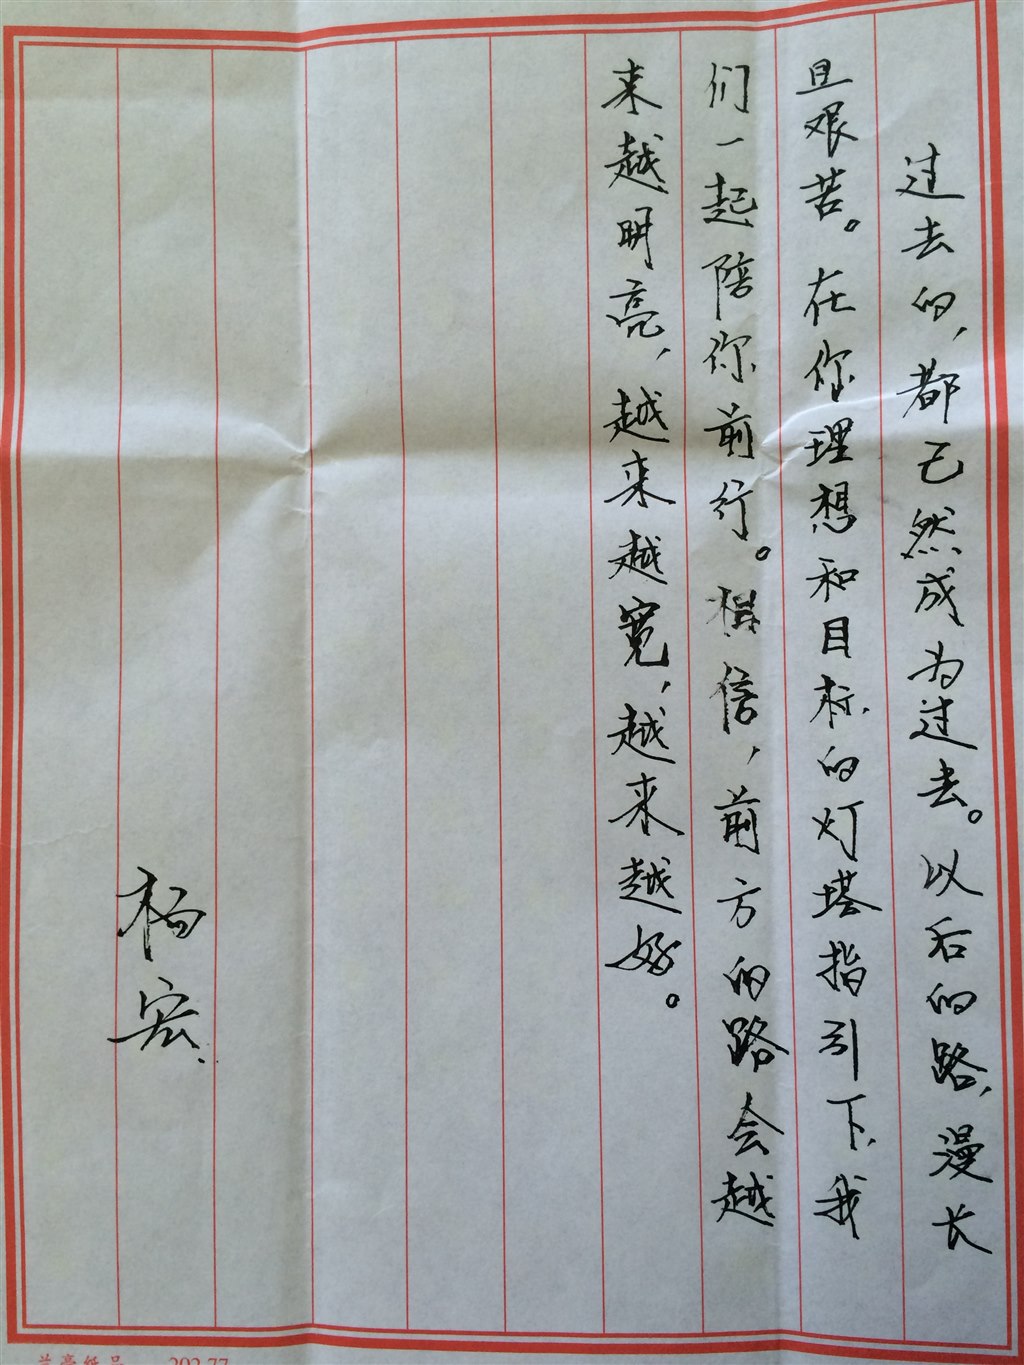 过去的，都已然成为过去。以后的路，漫长
且艰苦。在你理想和目标的灯塔指引下，我
们一起陪你前行。相信，前方的路会越
来越明亮，越来越宽，越来越好。
杨宏